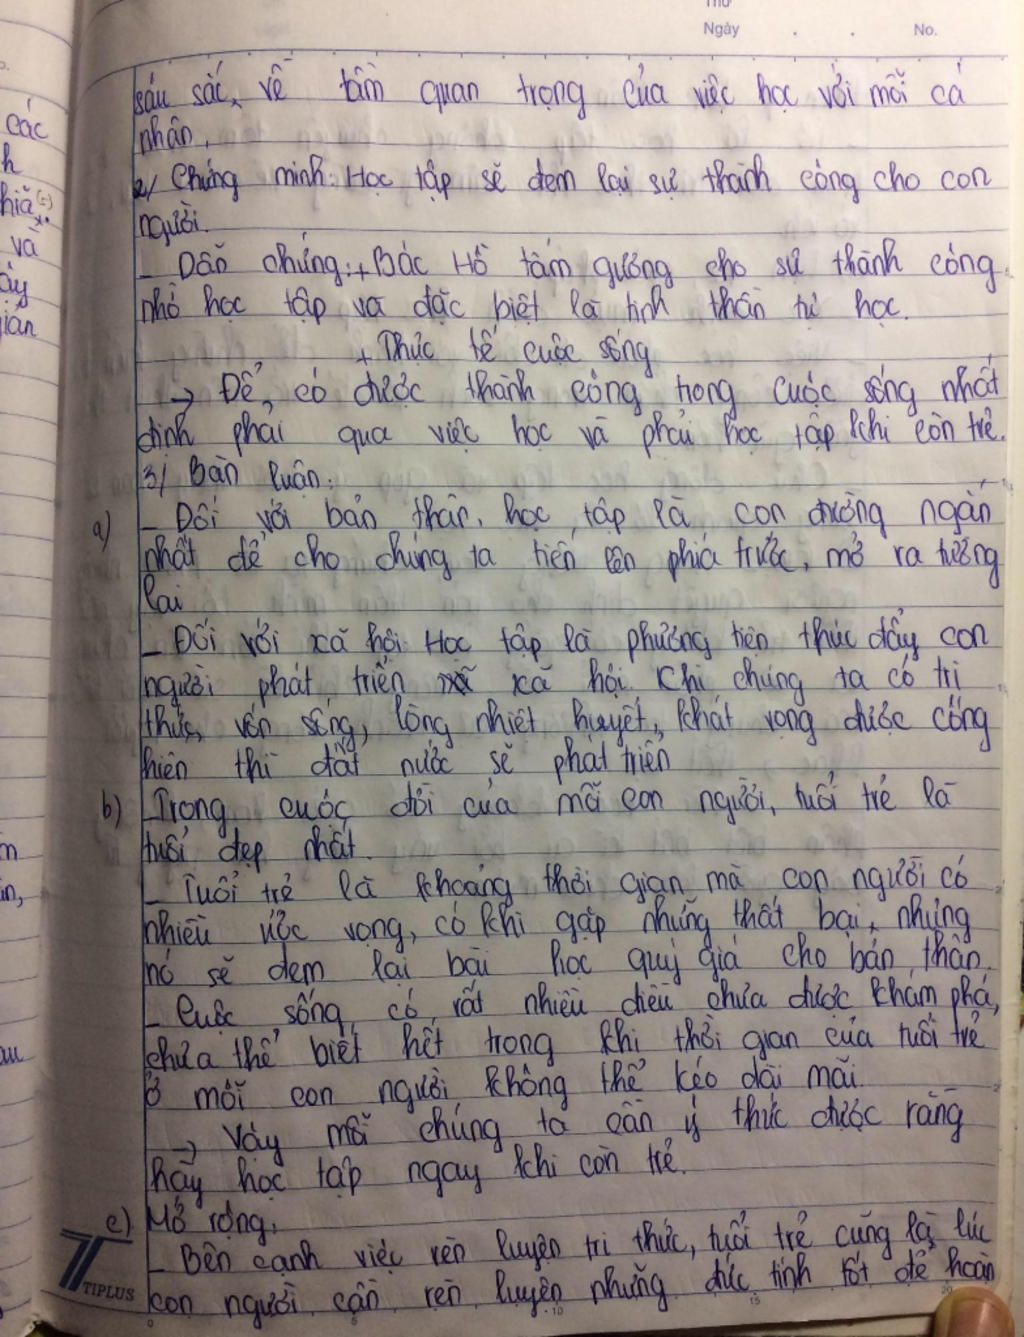 Thứ
Ngày . . No.
sâu sắc, về tầm quan trọng của việc học với mỗi cá
nhân.
2/ Chứng minh: Học tập sẽ đem lại sự thành công cho con
người.
- Dẫn chứng: + Bác Hồ tấm gương cho sự thành công
nhờ học tập và đặc biệt là tinh thần tự học.
+ Thực tế cuộc sống
→ Để có được thành công trong cuộc sống nhất
định phải qua việc học và phải học tập khi còn trẻ.
3/ Bàn luận:
a) - Đối với bản thân, học tập là con đường ngắn
nhất để cho chúng ta tiến lên phía trước, mở ra tương
lai
- Đối với xã hội Học tập là phương tiện thúc đẩy con
người phát triển xã hội. Khi chúng ta có tri
thức, vốn sống, lòng nhiệt huyết, khát vọng được cống
hiến thì đất nước sẽ phát triển
b) - Trong cuộc đời của mỗi con người, tuổi trẻ là
tuổi đẹp nhất.
- Tuổi trẻ là khoảng thời gian mà con người có
nhiều ước vọng, có khi gặp những thất bại, nhưng
nó sẽ đem lại bài học quý giá cho bản thân.
- Cuộc sống có rất nhiều điều chưa được khám phá,
chưa thể biết hết trong khi thời gian của tuổi trẻ
ở mỗi con người không thể kéo dài mãi.
→ Vậy mỗi chúng ta cần ý thức được rằng
hãy học tập ngay khi còn trẻ.
c) Mở rộng:
- Bên cạnh việc rèn luyện tri thức, tuổi trẻ cũng là lúc
con người cần rèn luyện những đức tính tốt để hoàn
TIPLUS
0 5 10 15 20
các
h
và
ây
giản